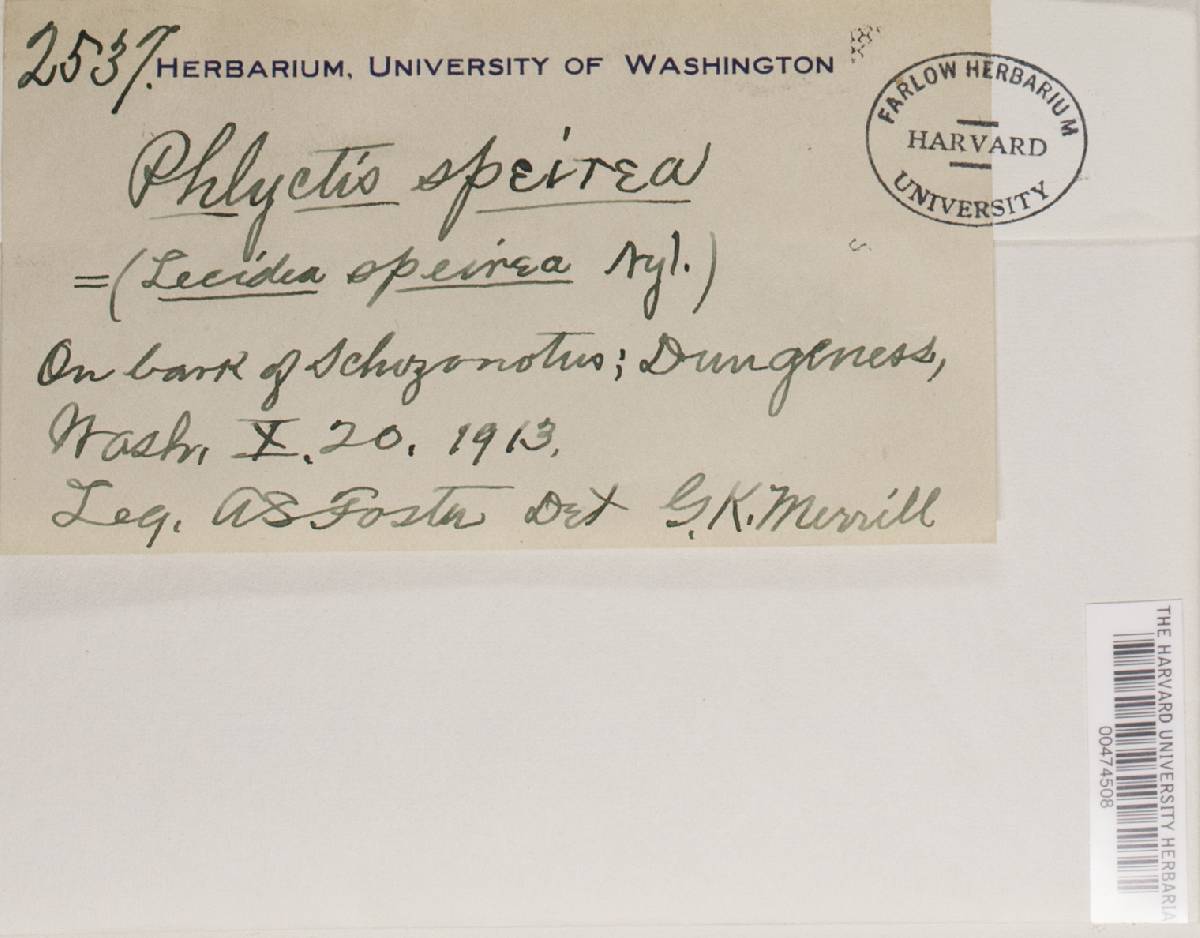 2537. HERBARIUM, UNIVERSITY OF WASHINGTON
Phlyctis speirea
=(Lecidea speirea Nyl.)
On bark of Schizonotus; Dungeness,
Wash. X. 20. 1913.
Leg. AS Foster Det G.K. Merrill
FARLOW HERBARIUM
HARVARD
UNIVERSITY
THE HARVARD UNIVERSITY HERBARIA
00474508